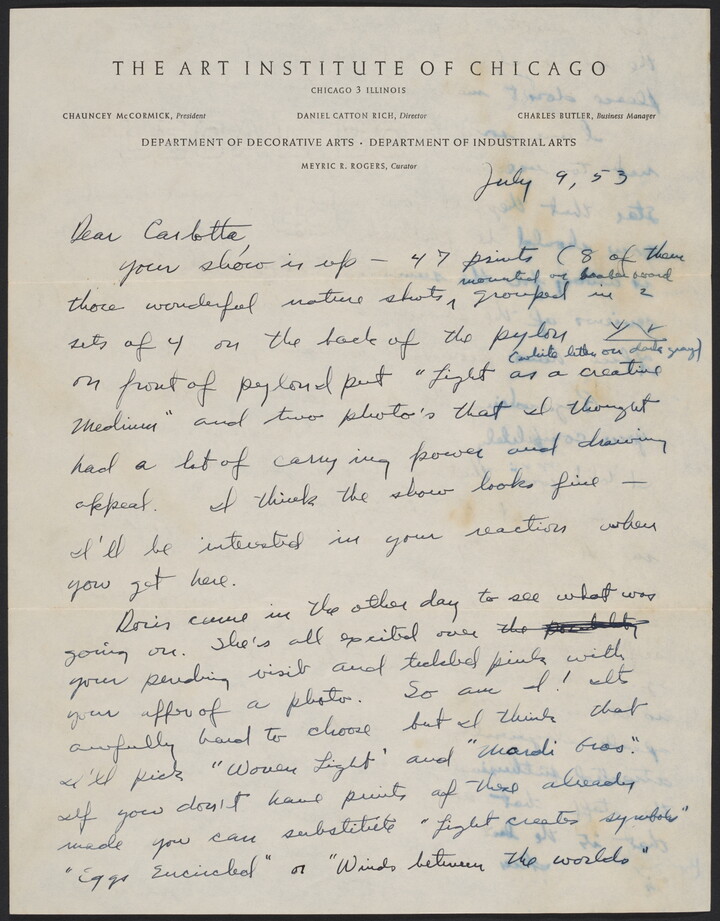 THE ART INSTITUTE OF CHICAGO
CHICAGO 3 ILLINOIS
CHAUNCEY McCORMICK, President DANIEL CATTON RICH, Director CHARLES BUTLER, Business Manager
DEPARTMENT OF DECORATIVE ARTS · DEPARTMENT OF INDUSTRIAL ARTS
MEYRIC R. ROGERS, Curator
July 9, 53
Dear Carlotta,
Your show is up — 47 prints (8 of them
mounted on board
those wonderful nature shots, grouped in 2
sets of 4 on the back of the pylon
(white letters on dark gray)
on front of pylon I put "Light as a creative
Medium" and two photo's that I thought
had a lot of carrying power and drawing
appeal. I think the show looks fine —
I'll be interested in your reaction when
you get here.
Doris came in the other day to see what was
going on. She's all excited over the possibility
your pending visit and tickled pink with
your offer of a photo. So am I! Its
awfully hard to choose but I think that
I'll pick "Woven Light" and "Mardi Gras".
If you don't have prints of these already
made you can substitute "Light creates symbols"
"Eggs Encircled" or "Winds between the worlds"